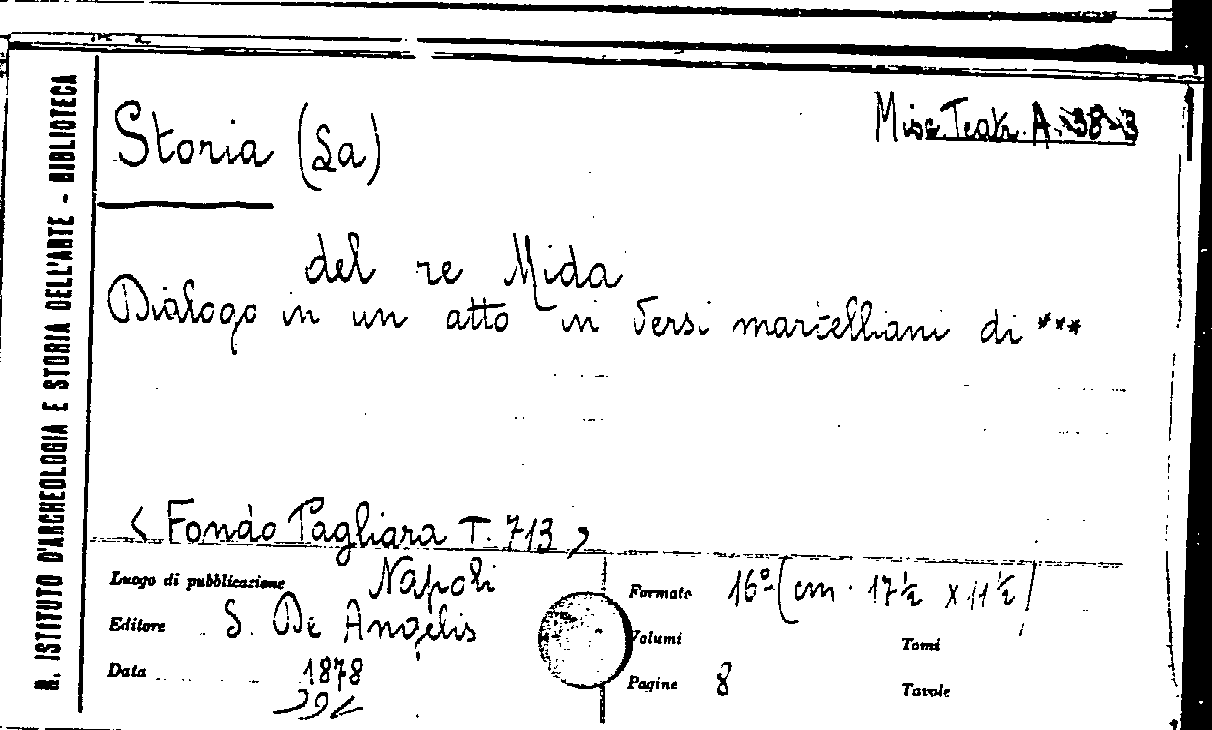 R. ISTITUTO D'ARCHEOLOGIA E STORIA DELL'ARTE - BIBLIOTECA
Misc. Teatr. A. 38-3
Storia (La)
del re Mida
Dialogo in un atto in versi martelliani di ***
< Fondo Pagliara T. 713 >
Luogo di pubblicazione Napoli
Editore S. De Angelis
Data 1878
Formato 16º (cm. 17½ x 11½)
Volumi
Tomi
Pagine 8
Tavole